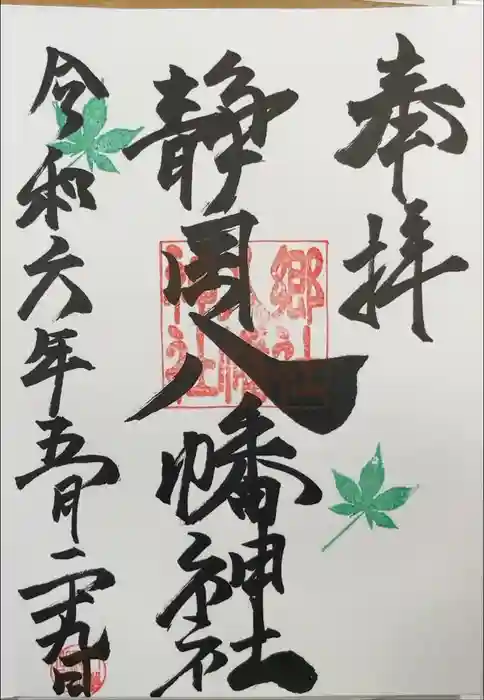 奉拝
静岡八幡神社
郷社八幡神社
令和六年五月二十九日